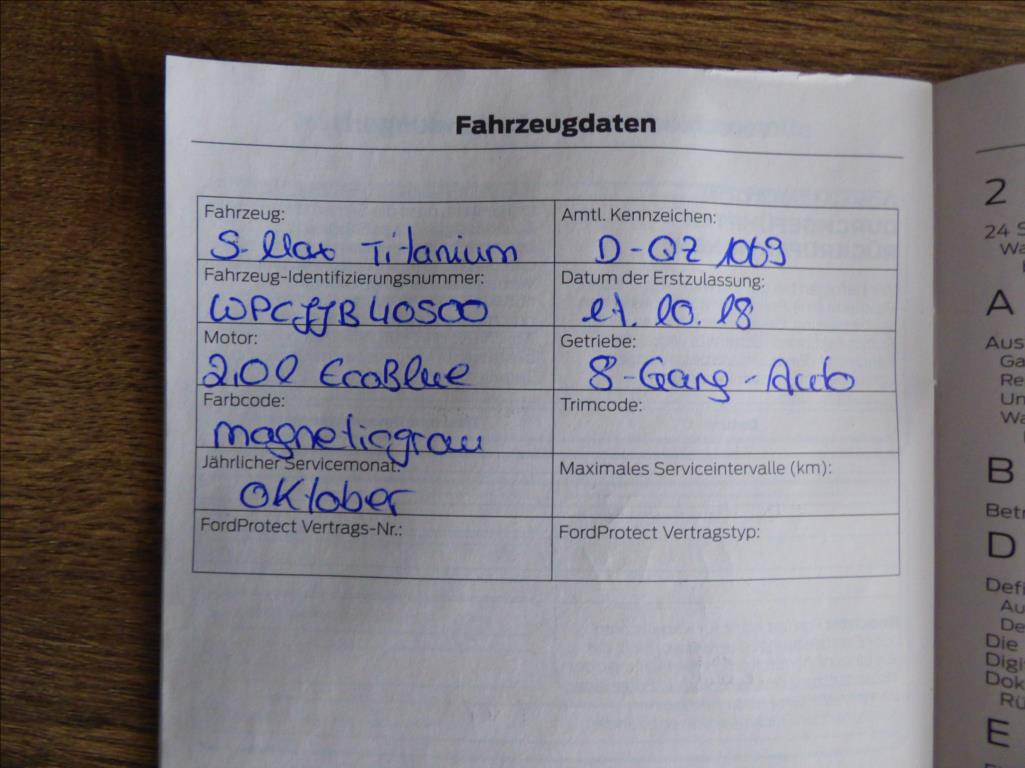 Fahrzeugdaten
Fahrzeug:
S-Max Titanium
Amtl. Kennzeichen:
D-QZ 1069
Fahrzeug-Identifizierungsnummer:
WPCJJB40500
Datum der Erstzulassung:
17. 10. 18
Motor:
2,0l EcoBlue
Getriebe:
8-Gang-Auto
Farbcode:
magneticgrau
Trimcode:
Jährlicher Servicemonat:
Oktober
Maximales Serviceintervalle (km):
FordProtect Vertrags-Nr.:
FordProtect Vertragstyp:
2
24
A
B
D
Die
E